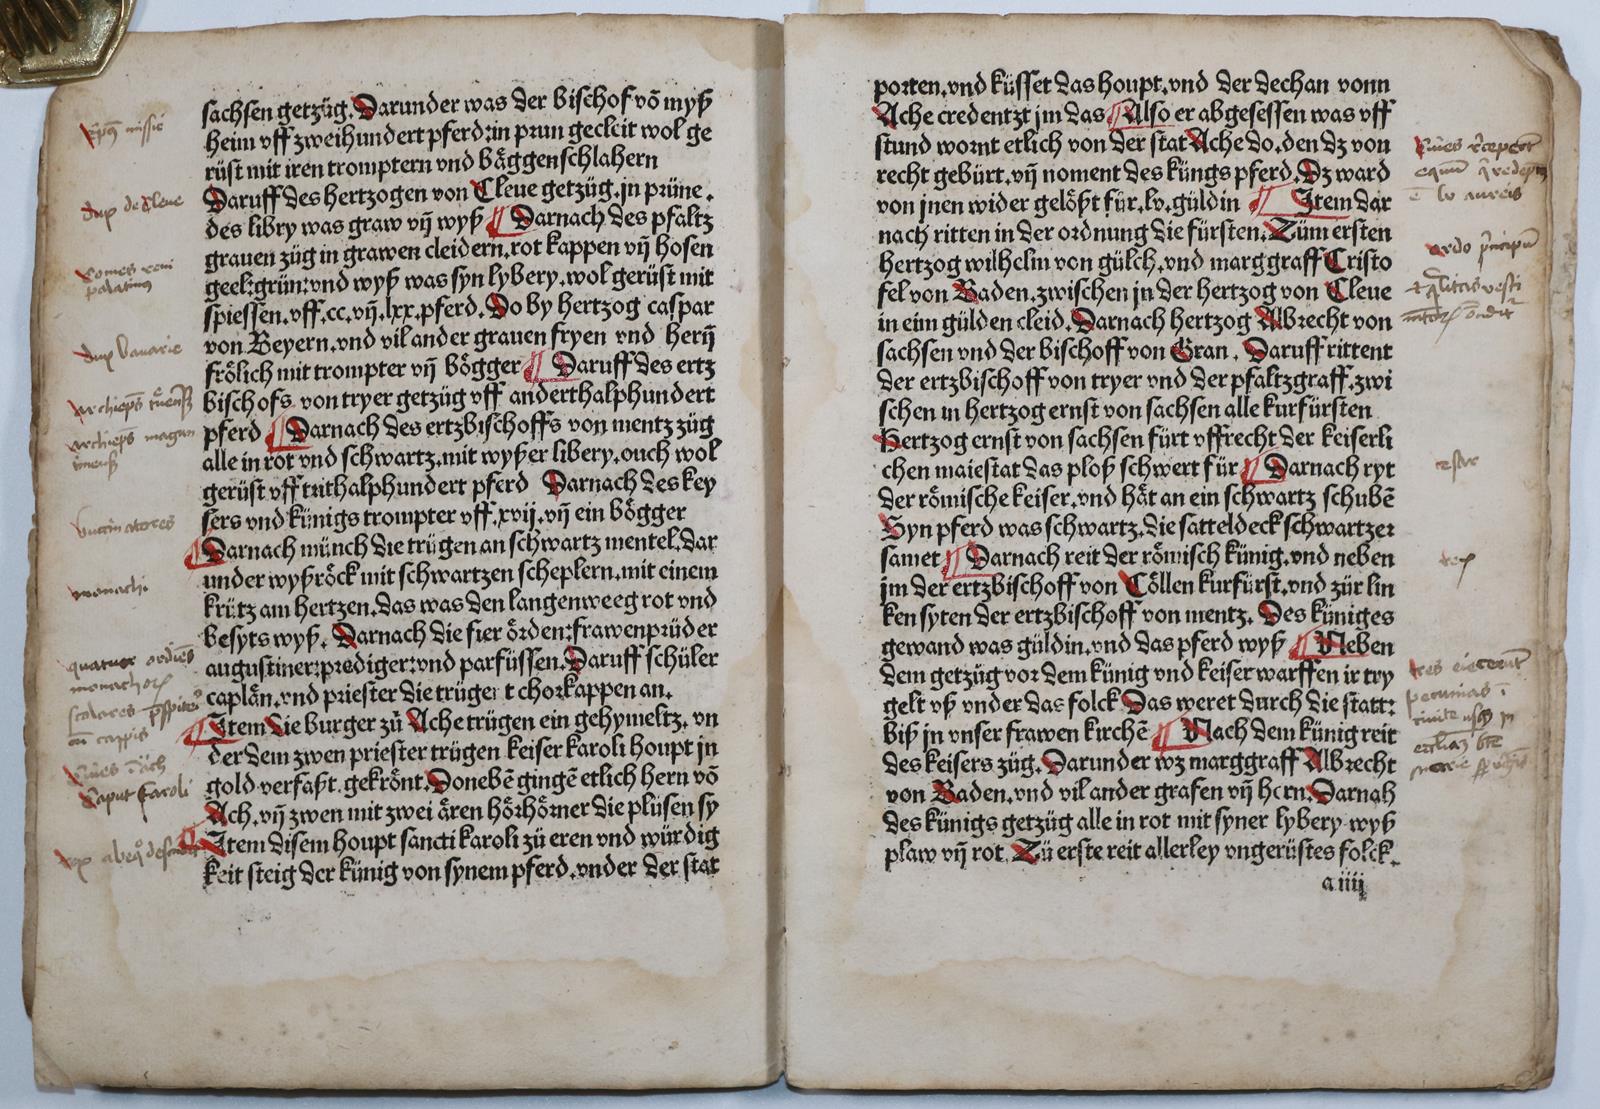 sachsen getzüg. Darunder was der bischof võ myß
heim vff zweihundert pferd:in prun gecleit wol ge
rüst mit iren tromptern vnd bäggenschlahern
Daruff des hertzogen von Cleue getzüg.jn prüne.
des libry was graw vñ wyß ¶ Darnach des pfaltz
grauen züg in grawen cleidern.rot kappen vñ hosen
geel:grün:vnd wyß was syn lybery.wol gerüst mit
spiessen.vff.cc.vñ.lxx.pferd. Do by hertzog caspar
von Beyern.vnd vil ander grauen fryen vnd herñ
frölich mit trompter vñ bögger ¶ Daruff des ertz
bischofs von tryer getzüg vff anderthalphundert
pferd ¶ Darnach des ertzbischoffs von mentz züg
alle in rot vnd schwartz.mit wyßer libery.ouch wol
gerüst vff truthalphundert pferd Darnach des key
sers vnd künigs trompter vff.xvij.vñ ein bögger
¶ Darnach münch die trügen an schwartz mentel.dar
under wyßröck mit schwartzen scheplern.mit einem
krütz am hertzen.das was den langenweeg rot vnd
besyts wyß. Darnach die fier örden:frawenprüder
augustiner:prediger:vnd parfüssen.Daruff schüler
caplän.vnd priester die trüge t chorkappen an.
¶ Item die burger zü Ache trügen ein gehymeltz.vn
der dem zwen priester trügen keiser karoli houpt jn
gold verfaßt.gekrönt.Donebẽ gingẽ etlich hern võ
Ach.vñ zwen mit zwei ären hörhörner die plüsen sy
¶ Item disem houpt sancti karoli zü eren vnd würdig
keit steig der künig von synem pferd.vnder der stat
dux de Cleue
dux bauarie
buccinatores
monachi
caput karoli
porten.vnd küsset das houpt.vnd der dechan vonn
Ache credentzt jm das ¶ Also er abgesessen was vff
stund wornt etlich von der stat Ache do.den dz von
recht gebürt.vñ noment des küngs pferd.Dz ward
von jnen wider gelößt für.lv.güldin ¶ Item dar
nach ritten in der ordnung die fürsten.Züm ersten
hertzog wilhelm von gülch.vnd marggraff Cristo
fel von Baden.zwischen jn der hertzog von Cleue
in eim gülden cleid.Darnach hertzog Albrecht von
sachsen vnd der bischoff von Gran. Daruff rittent
der ertzbischoff von tryer vnd der pfaltzgraff.zwi
schen in hertzog ernst von sachsen alle kurfürsten
Hertzog ernst von sachsen fürt vffrecht der keiserli
chen maiestat das ploß schwert für ¶ Darnach ryt
der römische keiser.vnd hät an ein schwartz schubẽ
Syn pferd was schwartz.die satteldeck schwartzer
samet ¶ Darnach reit der römisch künig.vnd neben
jm der ertzbischoff von Cöllen kurfürst.vnd zür lin
ken syten der ertzbischoff von mentz. Des küniges
gewand was güldin.vnd das pferd wyß ¶ Neben
dem getzüg vor dem künig vnd keiser warffen ir try
gelt vß vnder das folck Das weret durch die statt:
biß jn vnser frawen kirchẽ ¶ Nach dem künig reit
des keisers züg. Darunder wz marggraff Albrecht
von Baden.vnd vil ander grafen vñ hern.Darnah
des künigs getzüg alle in rot mit syner lybery wyß
plaw vñ rot. Zü erste reit allerley vngerüstes folck.
a iiij
cesar
rex